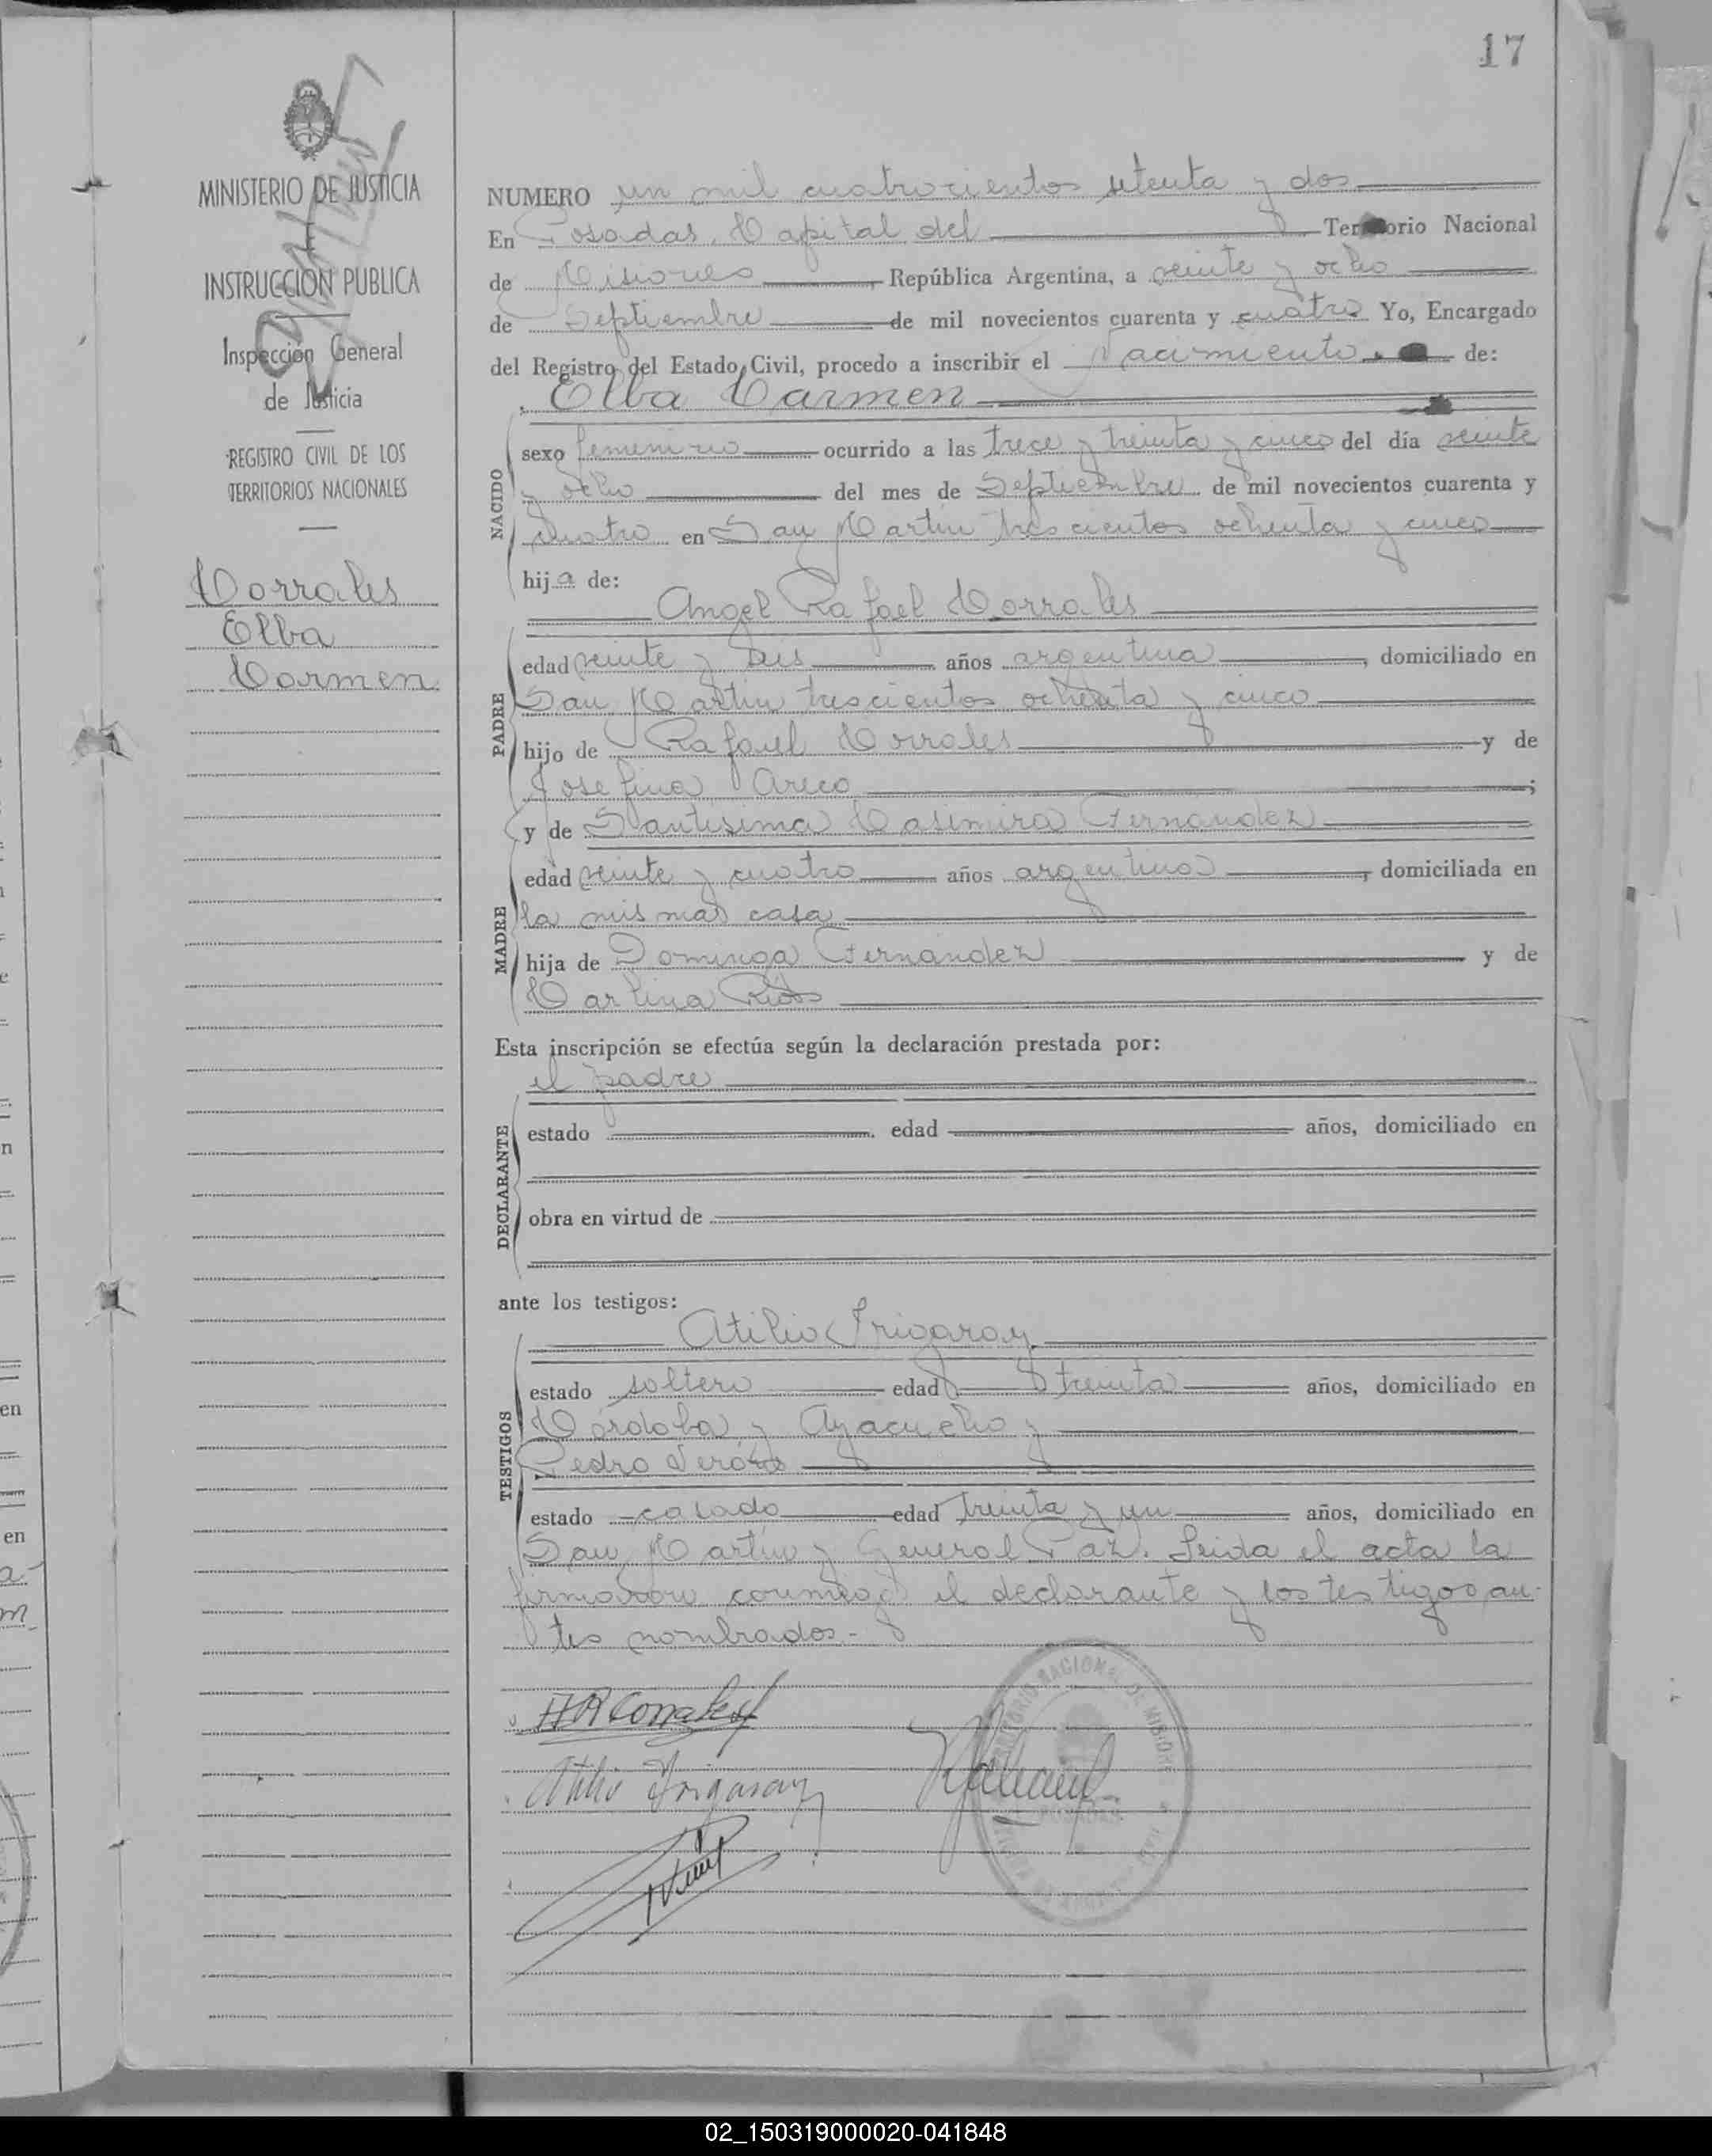 17
MINISTERIO DE JUSTICIA
INSTRUCCION PUBLICA
Inspección General
de Justicia
REGISTRO CIVIL DE LOS
TERRITORIOS NACIONALES
Corrales
Elba
Carmen
NUMERO un mil cuatrocientos setenta y dos
En Posadas, Capital del Territorio Nacional
de Misiones, República Argentina, a veinte y ocho
de Septiembre de mil novecientos cuarenta y cuatro Yo, Encargado
del Registro del Estado Civil, procedo a inscribir el Nacimiento de:
Elba Carmen
NACIDO
sexo femenino ocurrido a las trece y treinta y cinco del día veinte
y ocho del mes de Septiembre de mil novecientos cuarenta y
cuatro en San Martin trescientos ochenta y cinco
hija de:
Angel Rafael Corrales
PADRE
edad veinte y seis años argentina, domiciliado en
San Martin trescientos ochenta y cinco
hijo de Rafael Corrales y de
Josefina Areco;
y de Santisima Casimira Fernandez
MADRE
edad veinte y cuatro años argentina, domiciliada en
la misma casa
hija de Dominga Fernandez y de
Carlina
Esta inscripción se efectúa según la declaración prestada por:
el padre
DECLARANTE
estado edad años, domiciliado en
obra en virtud de
ante los testigos:
Atilio Irigaray
TESTIGOS
estado soltero edad treinta años, domiciliado en
Córdoba y Ayacucho y
Pedro
estado casado edad treinta y un años, domiciliado en
San Martin y General Paz. Leida el acta la
firmaron conmigo el declarante y los testigos an-
tes nombrados.-
A R Corrales
Atilio Irigaray
TERRITORIO NACIONAL DE MISIONES
02_150319000020-041848